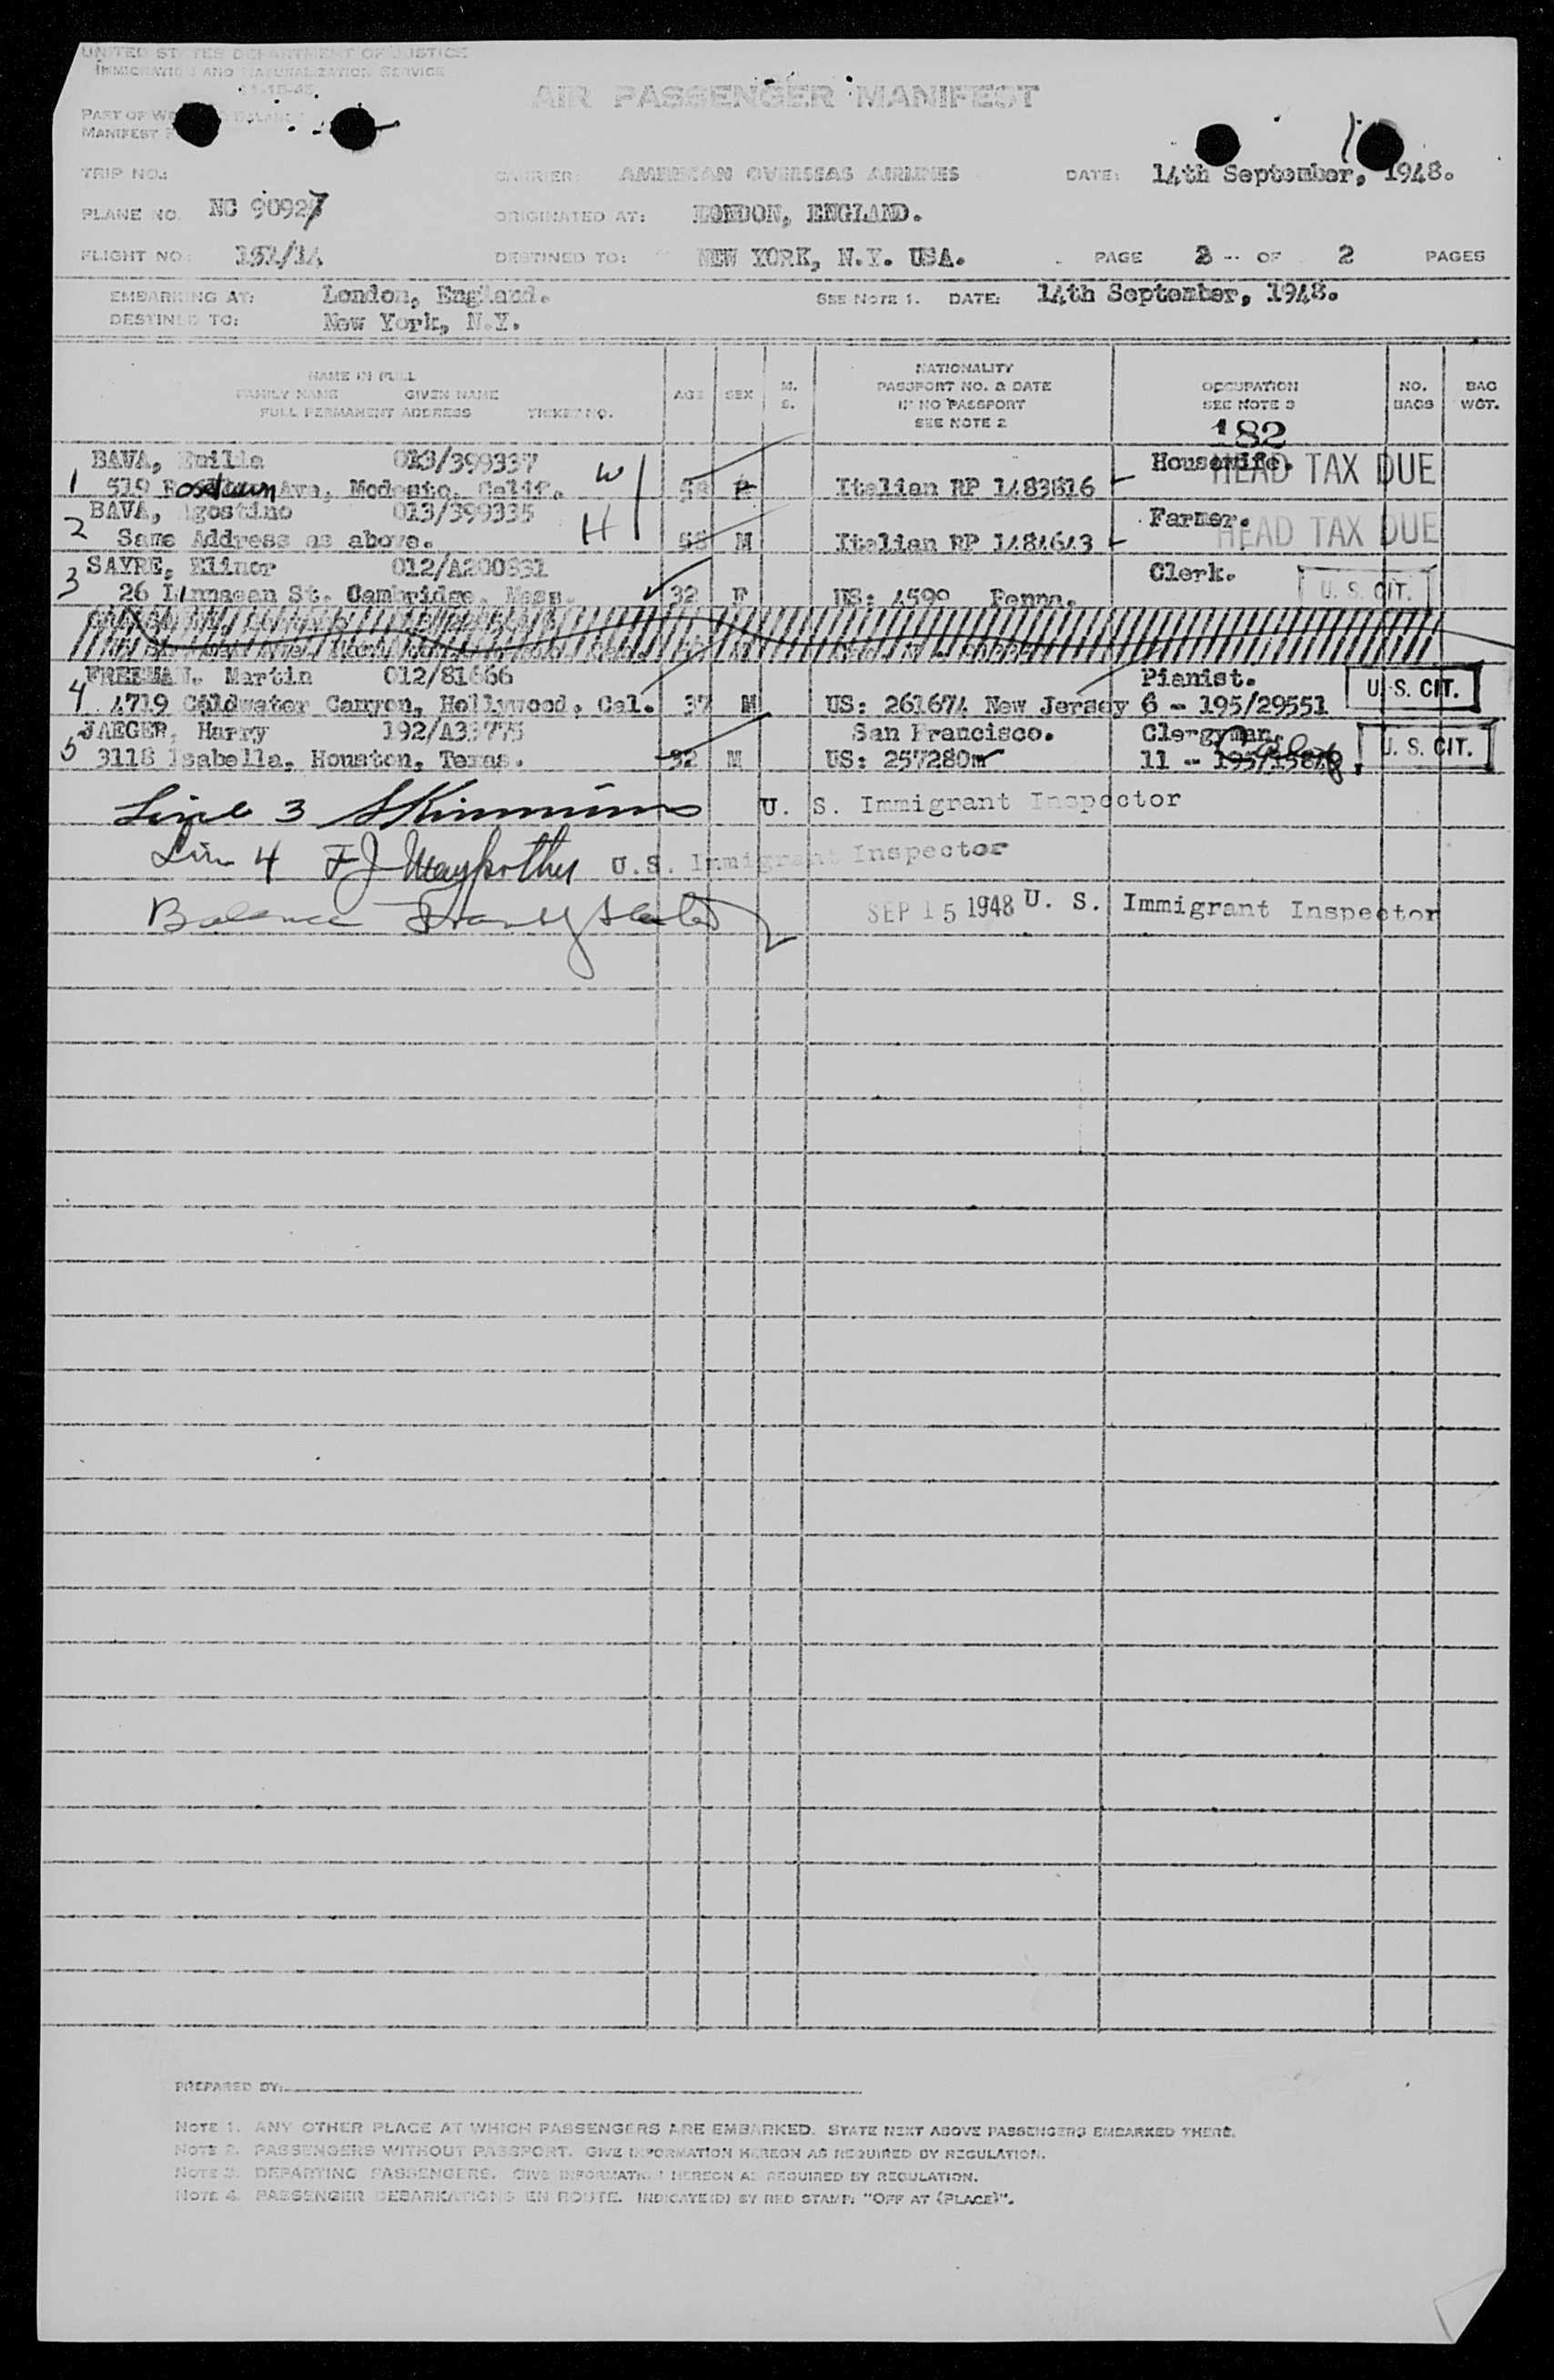 UNITED STATES DEPARTMENT OF JUSTICE
IMMIGRATION AND NATURALIZATION SERVICE
AIR PASSENGER MANIFEST
PART OF
MANIFEST
TRIP NO.: CARRIER: AMERICAN OVERSEAS AIRLINES DATE: 14th September, 1948.
PLANE NO. NC 90927 ORIGINATED AT: LONDON, ENGLAND.
FLIGHT NO: DESTINED TO: NEW YORK, N.Y. USA. PAGE 2 OF 2 PAGES
EMBARKING AT: London, England. SEE NOTE 1. DATE: 14th September, 1948.
DESTINED TO: New York, N.Y.
NAME IN FULL
FAMILY NAME GIVEN NAME
FULL PERMANENT ADDRESS TICKET NO.
AGE SEX M. S.
NATIONALITY
PASSPORT NO. & DATE
IF NO PASSPORT
SEE NOTE 2
OCCUPATION
SEE NOTE 3
NO. BAGS
BAG WGT.
182
BAVA, Emilia 013/399337 W Housewife. HEAD TAX DUE
1 519 Ave, Modesto, Calif. Italian RP 1483816
BAVA, Agostino 013/399335 H Farmer. HEAD TAX DUE
2 Same Address as above. 58 M Italian RP 1484643
SAYRE, Elinor 012/A200831 Clerk. U. S. CIT.
3 26 Linnaean St. Cambridge, Mass. 32 F US: 4590 Penna.
FREEMAN, Martin 012/81666 Pianist. U. S. CIT.
4 4719 Coldwater Canyon, Hollywood, Cal. 37 M US: 261674 New Jersey 6 - 195/29551
JAEGER, Harry 192/A35775 San Francisco. Clergyman. U. S. CIT.
5 3118 Isabella, Houston, Texas. 32 M US: 257280 11 -
Line 3 U. S. Immigrant Inspector
Line 4 U.S. Immigrant Inspector
Balance SEP 15 1948 U. S. Immigrant Inspector
PREPARED BY:
NOTE 1. ANY OTHER PLACE AT WHICH PASSENGERS ARE EMBARKED. STATE NEXT ABOVE PASSENGERS EMBARKED THERE.
NOTE 2. PASSENGERS WITHOUT PASSPORT. GIVE INFORMATION HEREON AS REQUIRED BY REGULATION.
NOTE 3. DEPARTING PASSENGERS. GIVE INFORMATION HEREON AS REQUIRED BY REGULATION.
NOTE 4. PASSENGER DEBARKATIONS EN ROUTE. INDICATE(D) BY RED STAMP: "OFF AT (PLACE)".